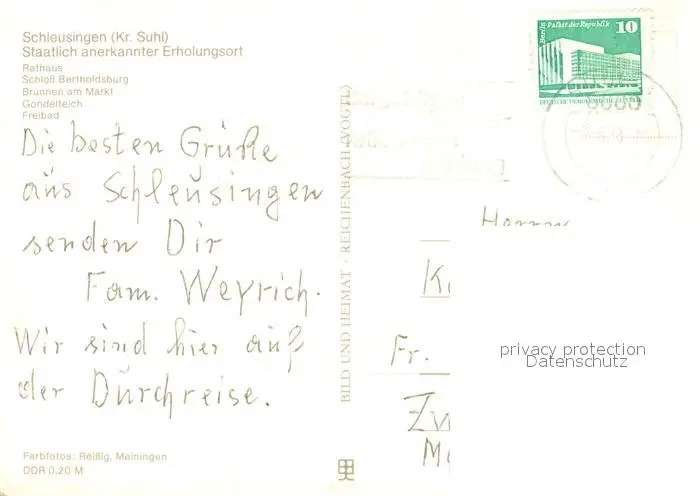 Schleusingen (Kr. Suhl)
Staatlich anerkannter Erholungsort
Rathaus
Schloß Bertholdsburg
Brunnen am Markt
Gondelteich
Freibad
Die besten Grüße
aus Schleusingen
senden Dir
Fam. Weyrich.
Wir sind hier auf
der Durchreise.
Farbfotos: Reißig, Meiningen
DDR 0,20 M
BILD UND HEIMAT · REICHENBACH (VOGTL)
Berlin, Palast der Republik
10
DEUTSCHE DEMOKRATISCHE REPUBLIK
Fr.
privacy protection
Datenschutz